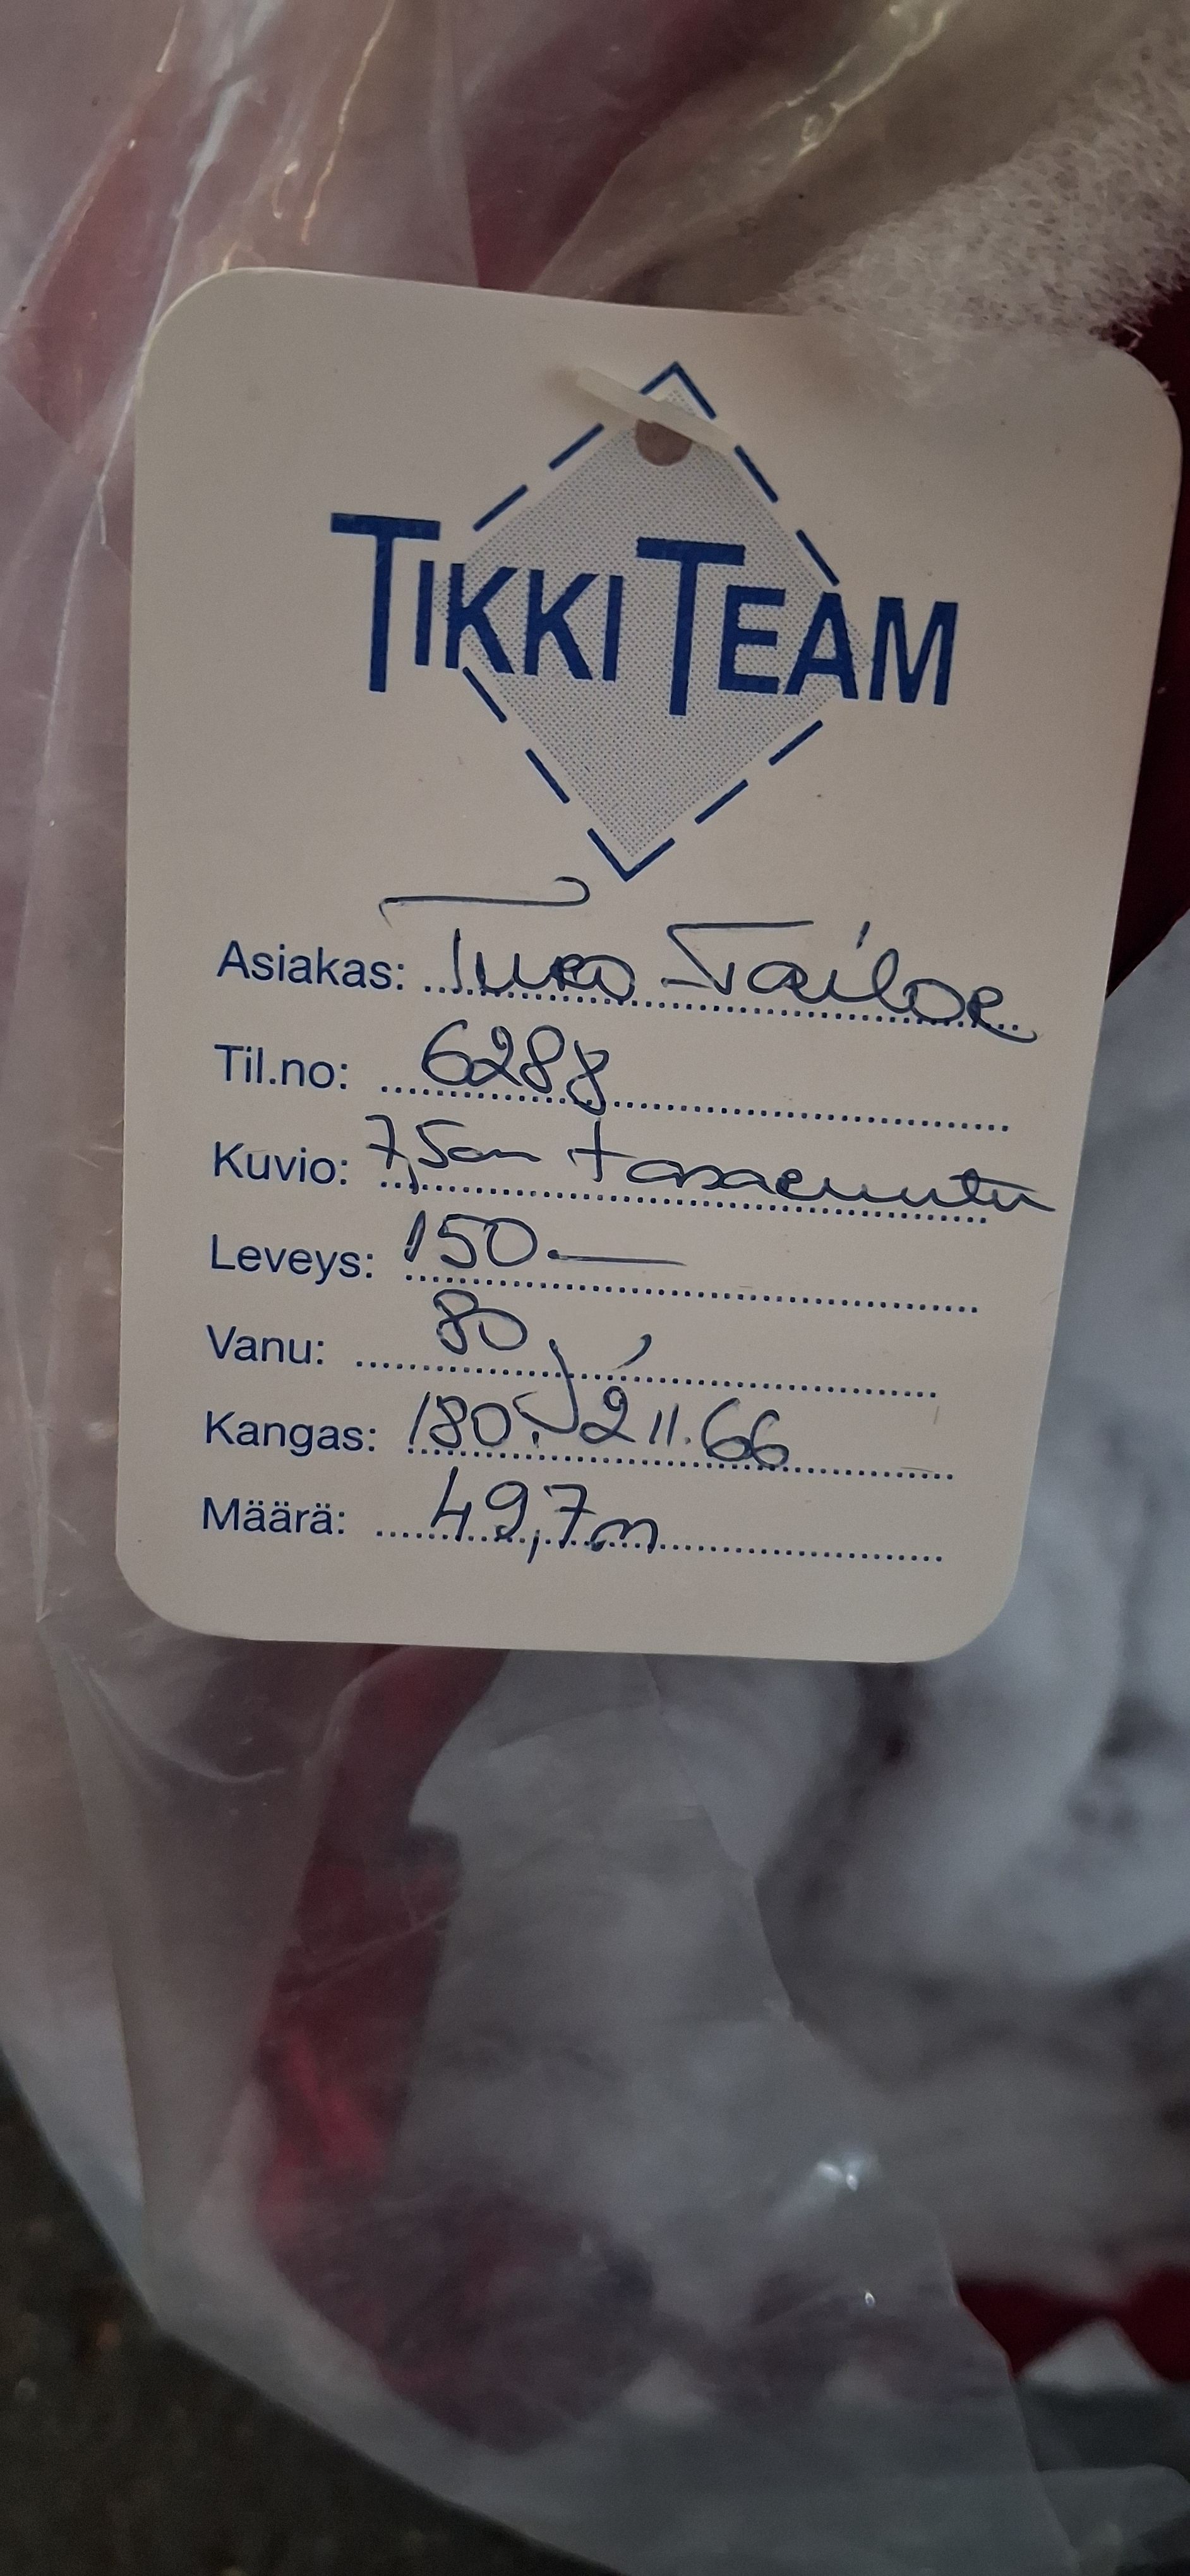 TIKKI TEAM
Asiakas: Turo Tailor
Til.no: 6288
Kuvio: 7,5cm tasaruutu
Leveys: 150.—
Vanu: 80
Kangas: 180 211.66
Määrä: 49,7m